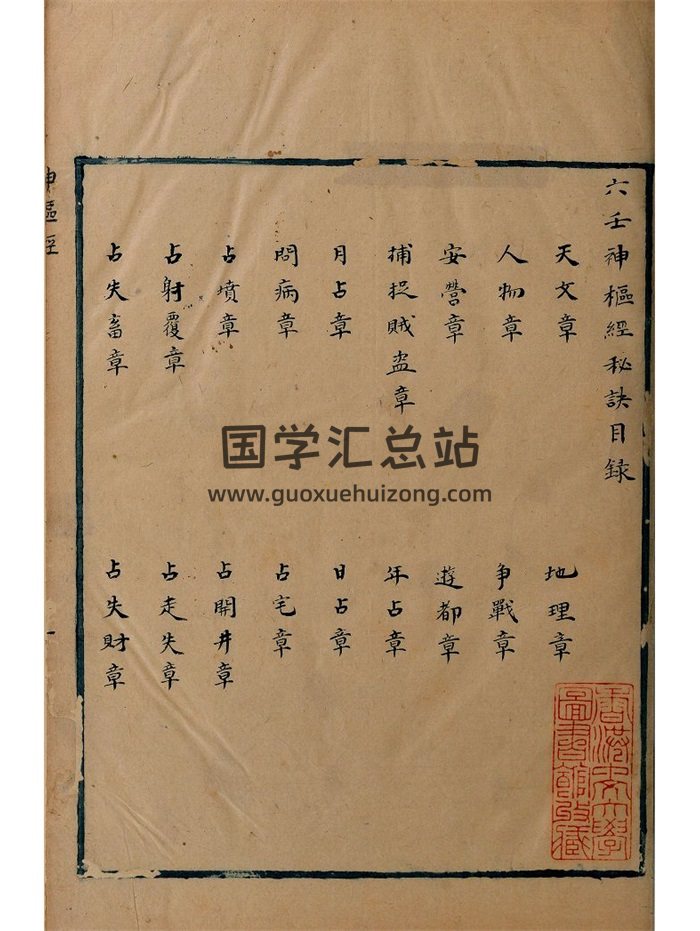 六壬神樞經秘訣目録
天文章
地理章
人物章
争戰章
安營章
遊都章
捕捉賊盗章
年占章
月占章
日占章
問病章
占宅章
占墳章
占開井章
占射覆章
占走失章
占失畜章
占失財章
神樞經
一
国学汇总站
www.guoxuehuizong.com
香港中文大學
圖書館所藏